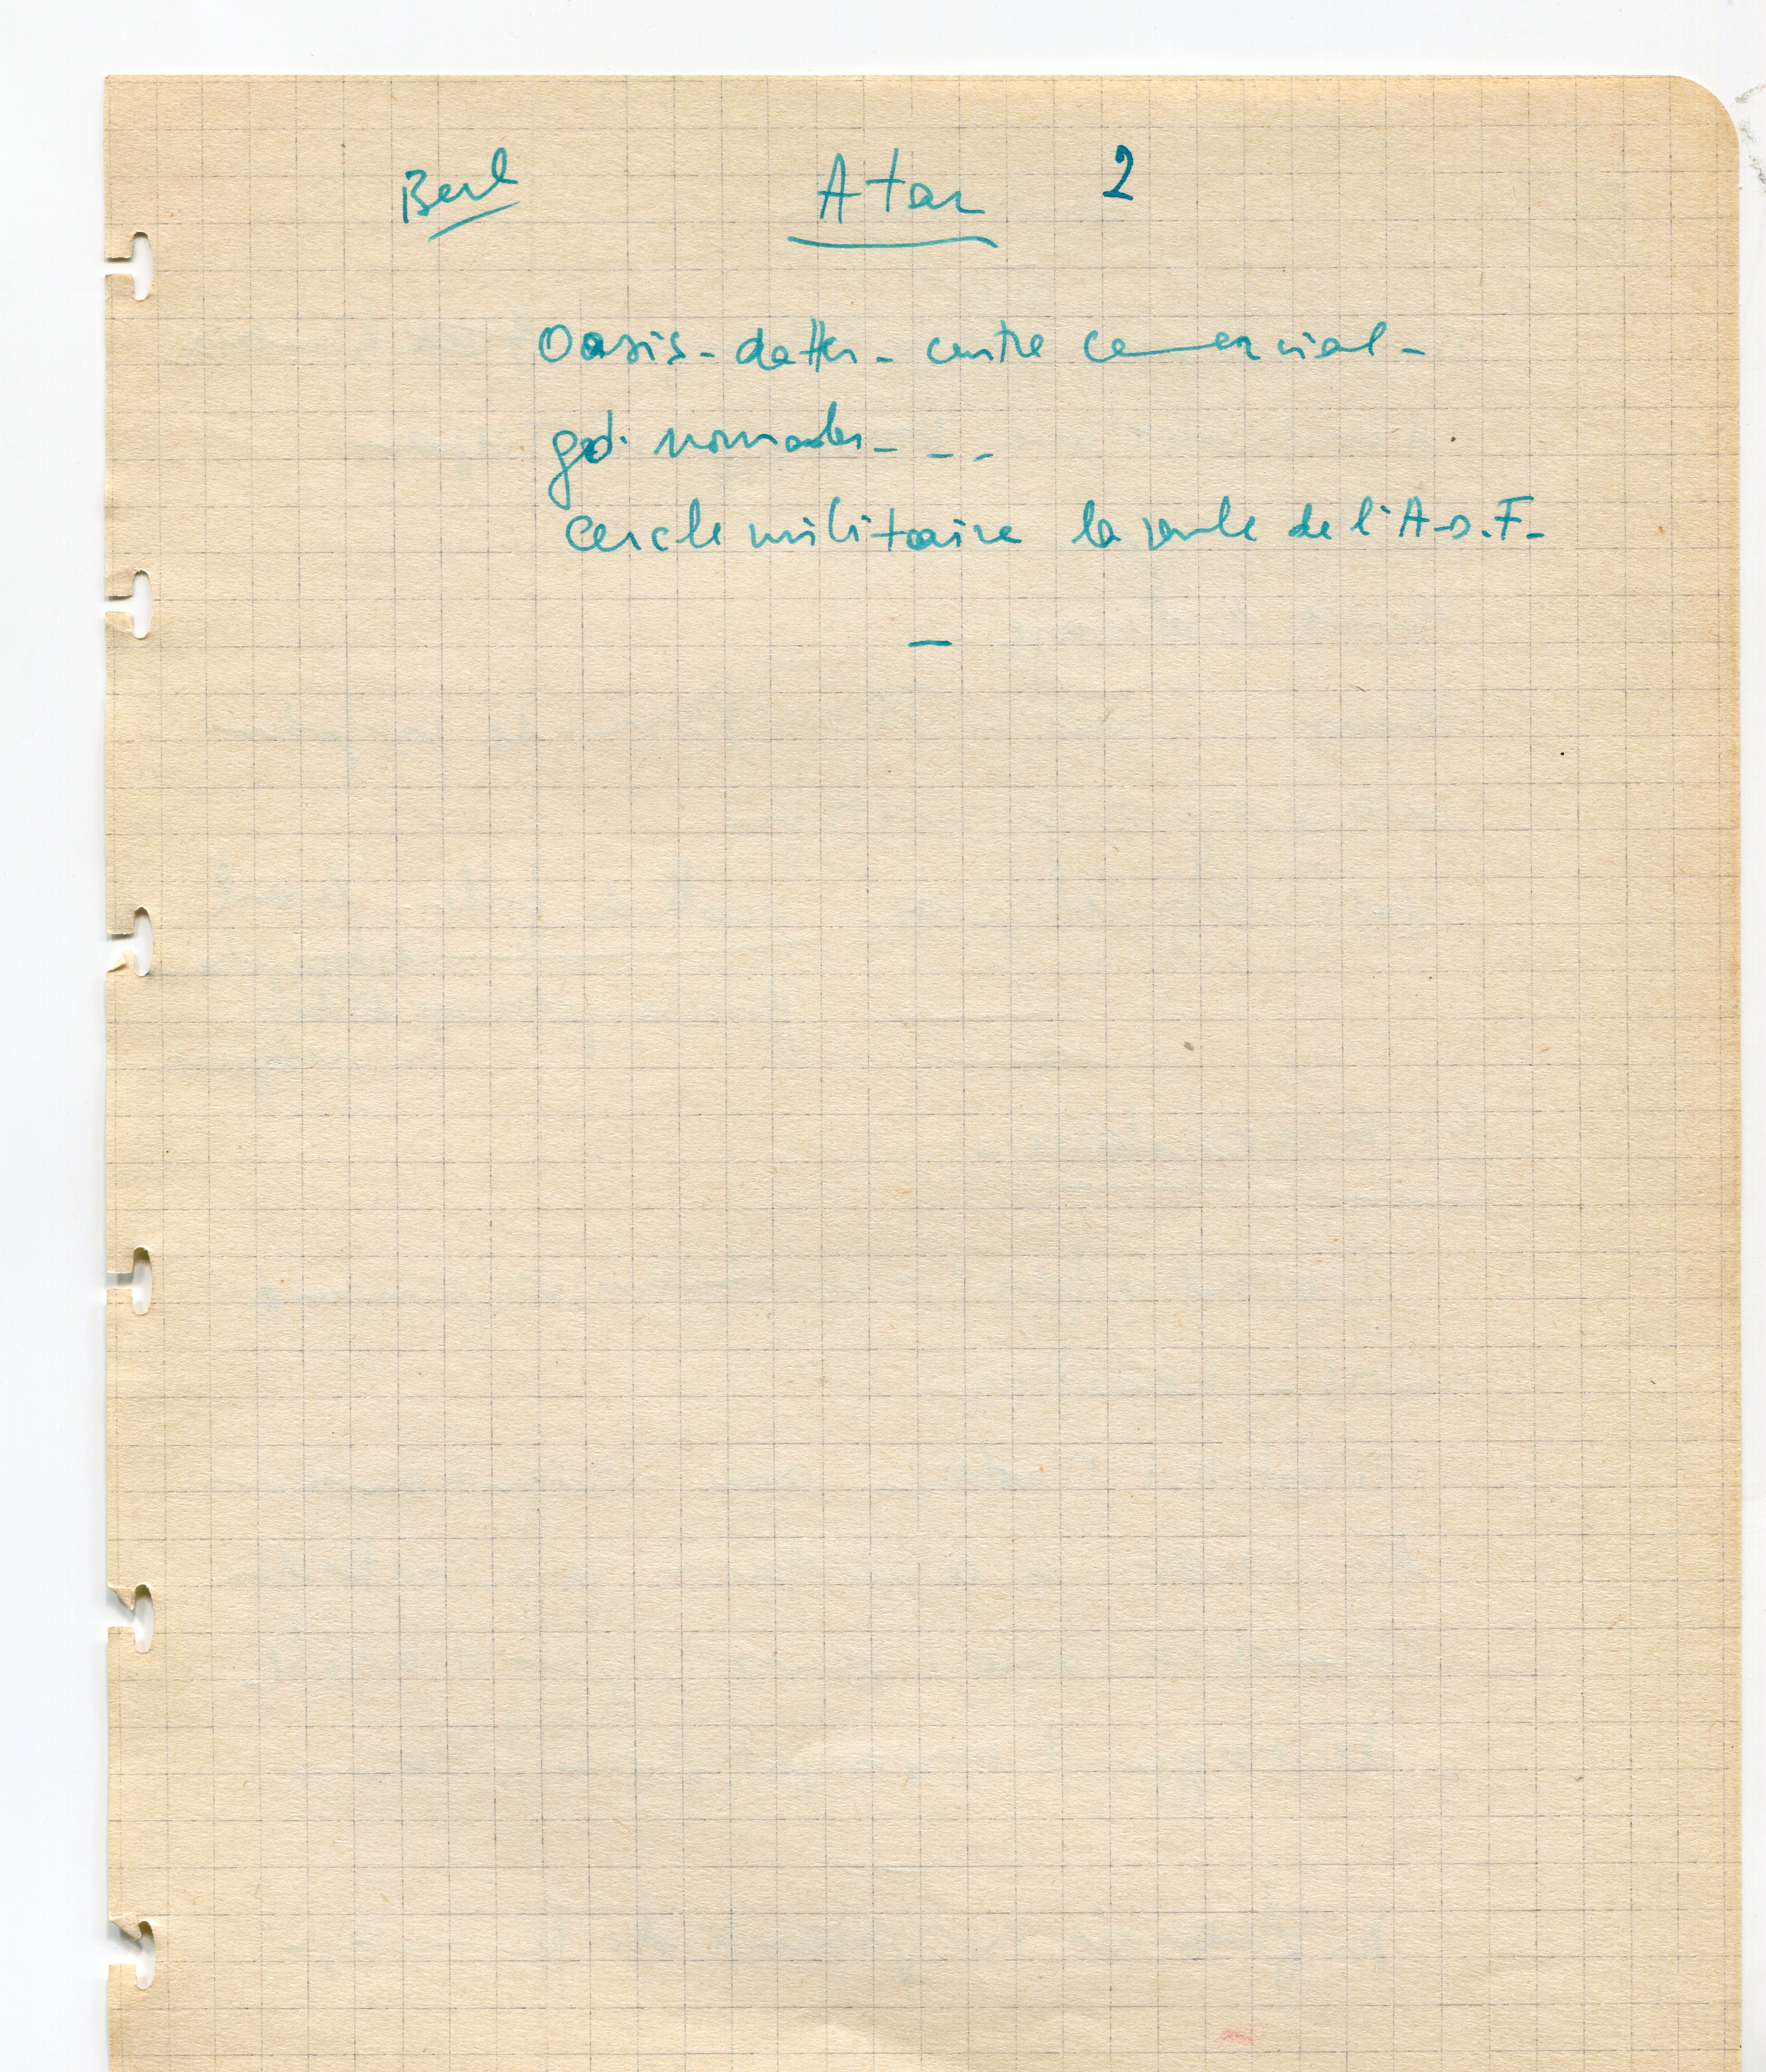 Berl Atar 2
Oasis - dattes - centre commercial -
gds nomades - - -
Cercle militaire la seule de l'A.O.F.